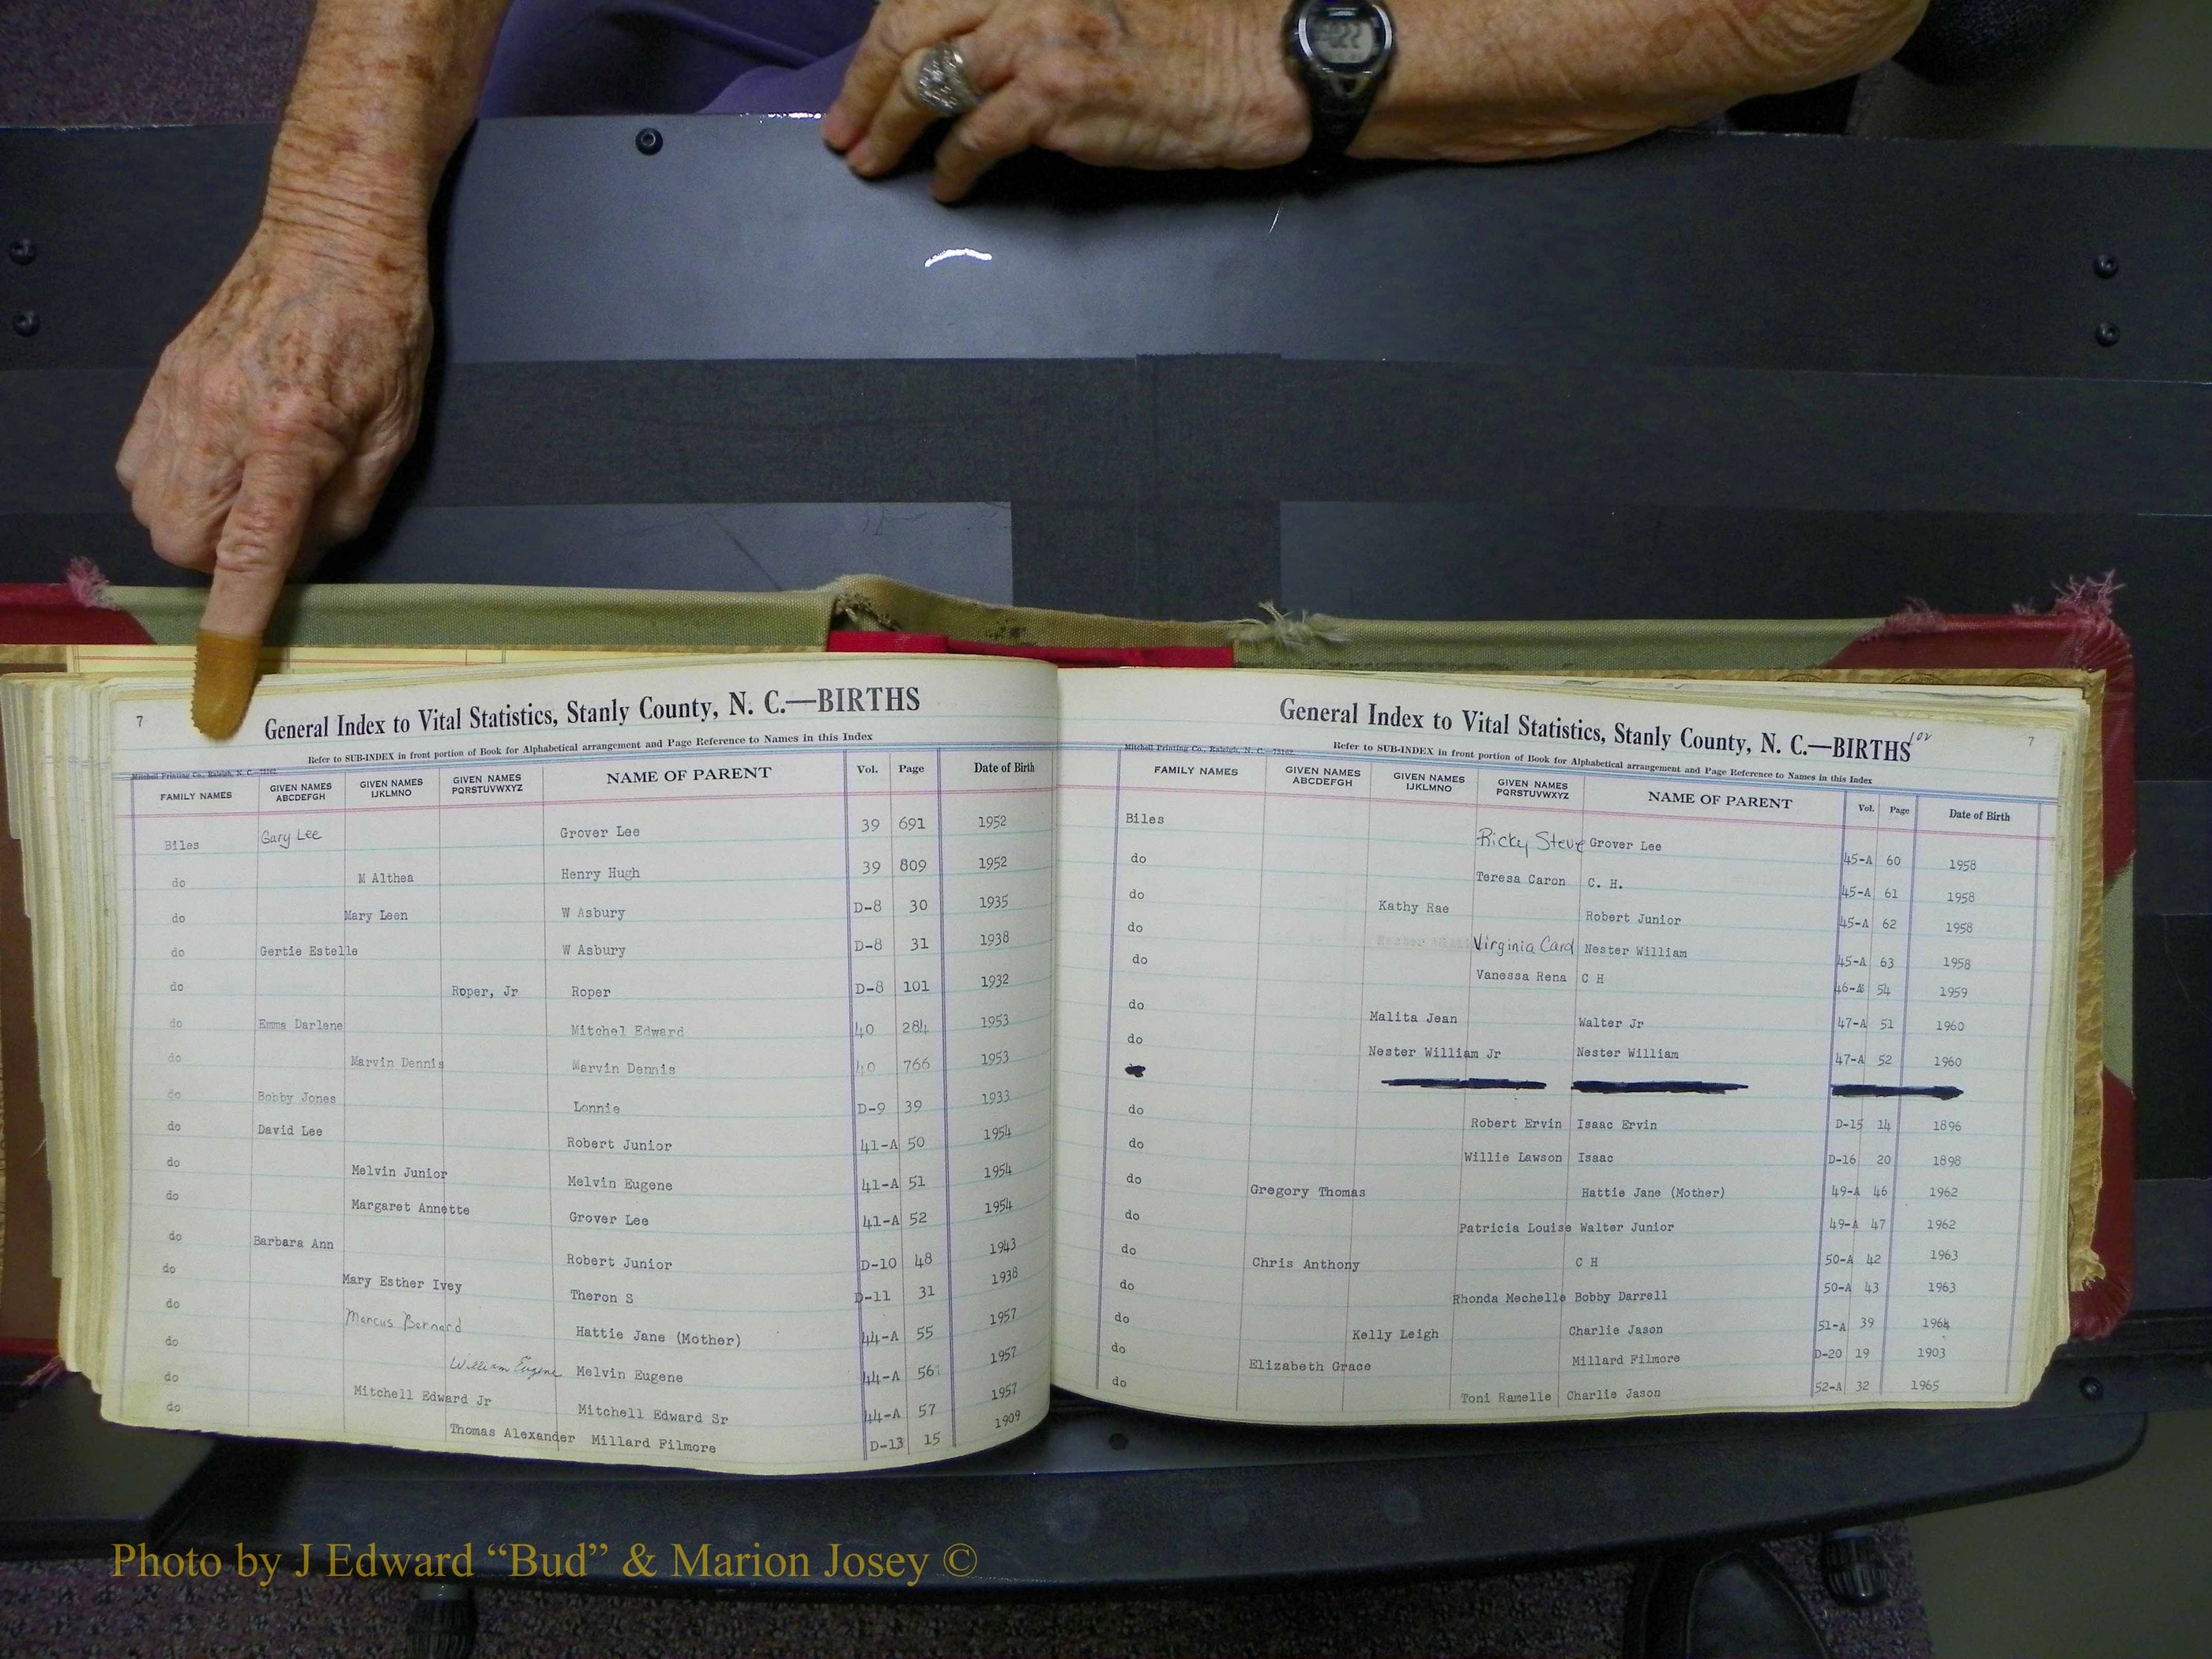 7
General Index to Vital Statistics, Stanly County, N. C.—BIRTHS
Refer to SUB-INDEX in front portion of Book for Alphabetical arrangement and Page Reference to Names in this Index
Mitchell Printing Co., Raleigh, N. C.
FAMILY NAMES GIVEN NAMES ABCDEFGH GIVEN NAMES IJKLMNO GIVEN NAMES PQRSTUVWXYZ NAME OF PARENT Vol. Page Date of Birth
Biles Gary Lee Grover Lee 39 691 1952
do M Althea Henry Hugh 39 809 1952
do Mary Leen W Asbury D-8 30 1935
do Gertie Estelle W Asbury D-8 31 1938
do Roper, Jr Roper D-8 101 1932
do Emma Darlene Mitchel Edward 40 284 1953
do Marvin Dennis Marvin Dennis 40 766 1953
do Bobby Jones Lonnie D-9 39 1933
do David Lee Robert Junior 41-A 50 1954
do Melvin Junior Melvin Eugene 41-A 51 1954
do Margaret Annette Grover Lee 41-A 52 1954
do Barbara Ann Robert Junior D-10 48 1943
do Mary Esther Ivey Theron S D-11 31 1938
do Marcus Bernard Hattie Jane (Mother) 44-A 55 1957
do William Eugene Melvin Eugene 44-A 56 1957
do Mitchell Edward Jr Mitchell Edward Sr 44-A 57 1957
do Thomas Alexander Millard Filmore D-13 15 1909
General Index to Vital Statistics, Stanly County, N. C.—BIRTHS
7
Mitchell Printing Co., Raleigh, N. C.—75162
Refer to SUB-INDEX in front portion of Book for Alphabetical arrangement and Page Reference to Names in this Index
FAMILY NAMES GIVEN NAMES ABCDEFGH GIVEN NAMES IJKLMNO GIVEN NAMES PQRSTUVWXYZ NAME OF PARENT Vol. Page Date of Birth
Biles Ricky Steve Grover Lee 45-A 60 1958
do Teresa Caron C. H. 45-A 61 1958
do Kathy Rae Robert Junior 45-A 62 1958
do Virginia Carol Nester William 45-A 63 1958
do Vanessa Rena C H 46-A 54 1959
do Malita Jean Walter Jr 47-A 51 1960
do Nester William Jr Nester William 47-A 52 1960
do Robert Ervin Isaac Ervin D-15 14 1896
do Willie Lawson Isaac D-16 20 1898
do Gregory Thomas Hattie Jane (Mother) 49-A 46 1962
do Patricia Louise Walter Junior 49-A 47 1962
do Chris Anthony C H 50-A 42 1963
do Rhonda Mechelle Bobby Darrell 50-A 43 1963
do Kelly Leigh Charlie Jason 51-A 39 1964
do Elizabeth Grace Millard Filmore D-20 19 1903
do Toni Ramelle Charlie Jason 52-A 32 1965
Photo by J Edward “Bud” & Marion Josey ©